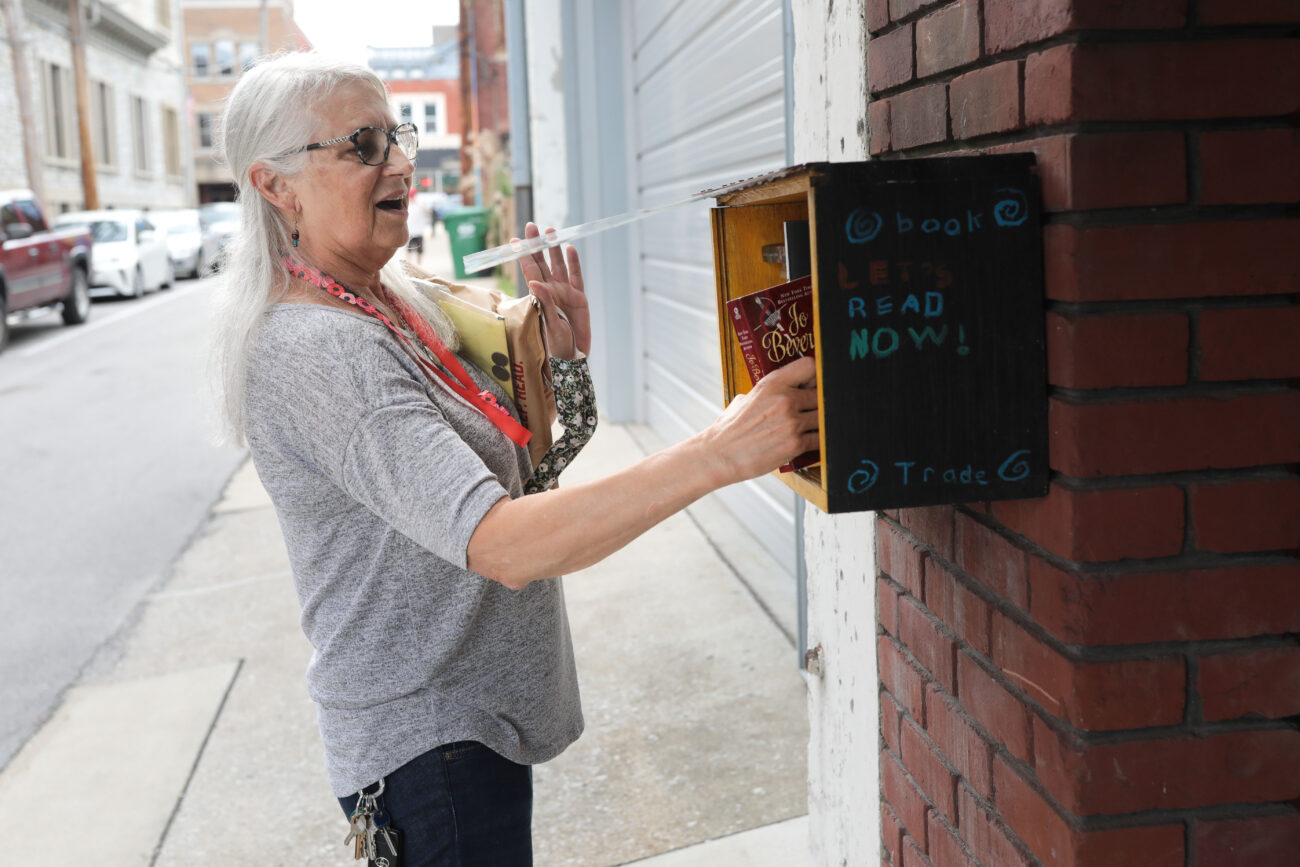 book
LET'S
READ
NOW!
Trade
Jo
Bever
READ.